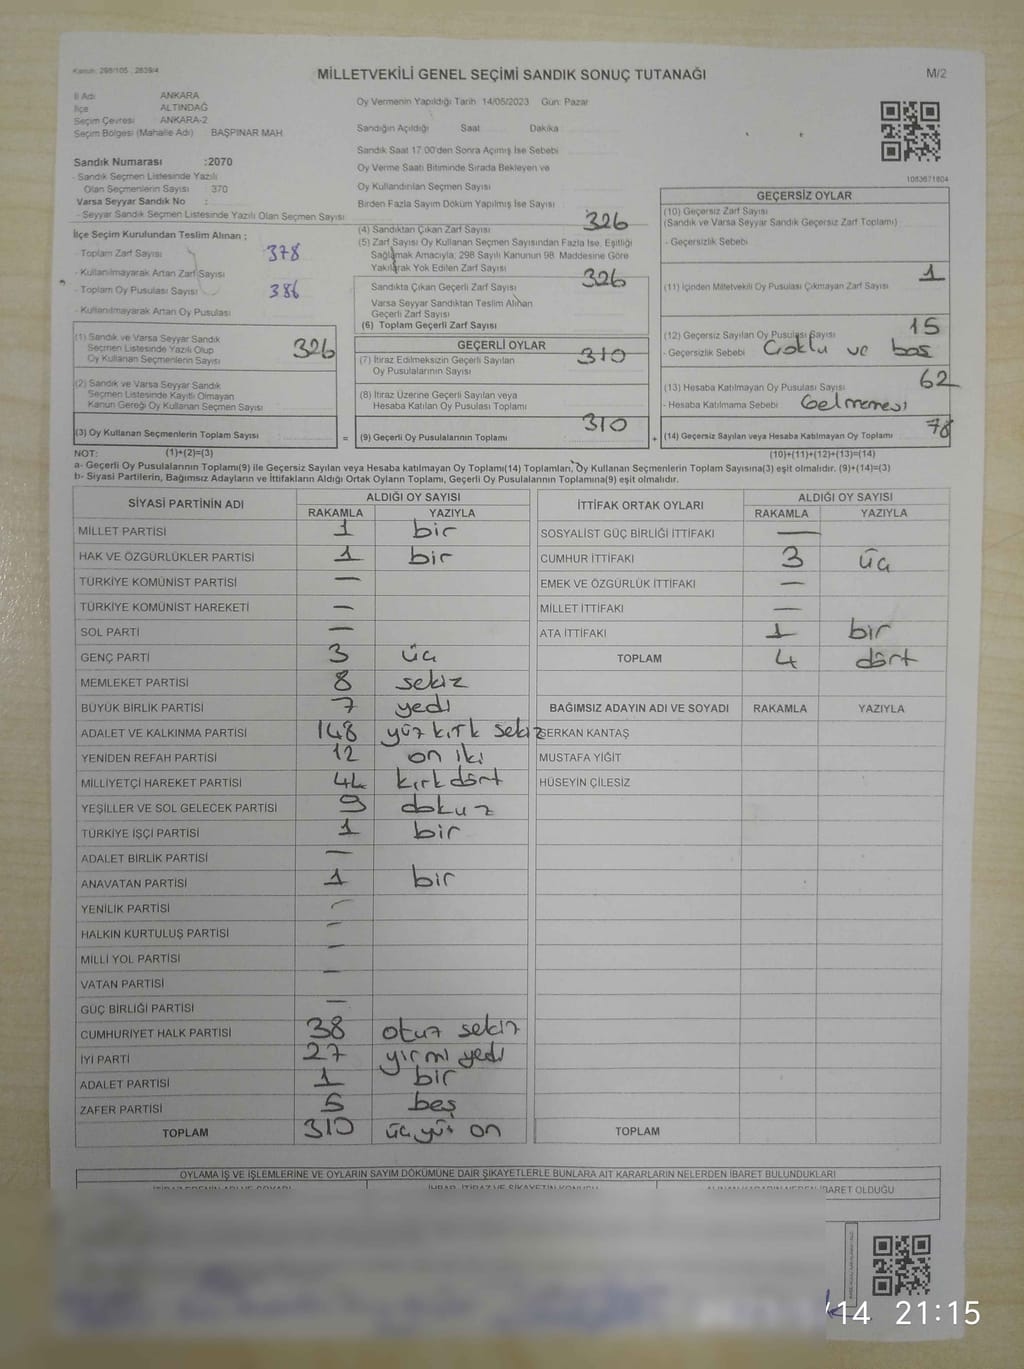 Kanun: 298/105 , 2839/4
MİLLETVEKİLİ GENEL SEÇİMİ SANDIK SONUÇ TUTANAĞI
M/2
İl Adı ANKARA
İlçe ALTINDAĞ
Seçim Çevresi ANKARA-2
Seçim Bölgesi (Mahalle Adı) BAŞPINAR MAH
Oy Vermenin Yapıldığı Tarih 14/05/2023 Gün: Pazar
Sandığın Açıldığı Saat Dakika
Sandık Saat 17.00'den Sonra Açılmış İse Sebebi
Oy Verme Saati Bitiminde Sırada Bekleyen ve
Oy Kullandırılan Seçmen Sayısı
Birden Fazla Sayım Döküm Yapılmış İse Sayısı
Sandık Numarası :2070
- Sandık Seçmen Listesinde Yazılı
Olan Seçmenlerin Sayısı : 370
Varsa Seyyar Sandık No :
- Seyyar Sandık Seçmen Listesinde Yazılı Olan Seçmen Sayısı
İlçe Seçim Kurulundan Teslim Alınan ;
- Toplam Zarf Sayısı 378
- Kullanılmayarak Artan Zarf Sayısı
- Toplam Oy Pusulası Sayısı 386
- Kullanılmayarak Artan Oy Pusulası
(1) Sandık ve Varsa Seyyar Sandık
Seçmen Listesinde Yazılı Olup
Oy Kullanan Seçmenlerin Sayısı 326
(2) Sandık ve Varsa Seyyar Sandık
Seçmen Listesinde Kayıtlı Olmayan
Kanun Gereği Oy Kullanan Seçmen Sayısı
(3) Oy Kullanan Seçmenlerin Toplam Sayısı =
(4) Sandıktan Çıkan Zarf Sayısı 326
(5) Zarf Sayısı Oy Kullanan Seçmen Sayısından Fazla İse, Eşitliği
Sağlamak Amacıyla; 298 Sayılı Kanunun 98. Maddesine Göre
Yakılarak Yok Edilen Zarf Sayısı
Sandıkta Çıkan Geçerli Zarf Sayısı 326
Varsa Seyyar Sandıktan Teslim Alınan
Geçerli Zarf Sayısı
(6) Toplam Geçerli Zarf Sayısı
GEÇERLİ OYLAR
(7) İtiraz Edilmeksizin Geçerli Sayılan 310
Oy Pusulalarının Sayısı
(8) İtiraz Üzerine Geçerli Sayılan veya
Hesaba Katılan Oy Pusulası Toplamı
(9) Geçerli Oy Pusulalarının Toplamı 310 +
1083671604
GEÇERSİZ OYLAR
(10) Geçersiz Zarf Sayısı
(Sandık ve Varsa Seyyar Sandık Geçersiz Zarf Toplamı)
- Geçersizlik Sebebi
(11) İçinden Milletvekili Oy Pusulası Çıkmayan Zarf Sayısı 1
(12) Geçersiz Sayılan Oy Pusulası Sayısı 15
- Geçersizlik Sebebi Çoklu ve boş
(13) Hesaba Katılmayan Oy Pusulası Sayısı 62
- Hesaba Katılmama Sebebi Gelmemesi
(14) Geçersiz Sayılan veya Hesaba Katılmayan Oy Toplamı 78
NOT: (1)+(2)=(3) (10)+(11)+(12)+(13)=(14)
a- Geçerli Oy Pusulalarının Toplamı(9) ile Geçersiz Sayılan veya Hesaba katılmayan Oy Toplamı(14) Toplamları, Oy Kullanan Seçmenlerin Toplam Sayısına(3) eşit olmalıdır. (9)+(14)=(3)
b- Siyasi Partilerin, Bağımsız Adayların ve İttifakların Aldığı Ortak Oyların Toplamı, Geçerli Oy Pusulalarının Toplamına(9) eşit olmalıdır.
SİYASİ PARTİNİN ADI ALDIĞI OY SAYISI
RAKAMLA YAZIYLA
MİLLET PARTİSİ 1 bir
HAK VE ÖZGÜRLÜKLER PARTİSİ 1 bir
TÜRKİYE KOMÜNİST PARTİSİ —
TÜRKİYE KOMÜNİST HAREKETİ —
SOL PARTİ —
GENÇ PARTİ 3 üç
MEMLEKET PARTİSİ 8 sekiz
BÜYÜK BİRLİK PARTİSİ 7 yedi
ADALET VE KALKINMA PARTİSİ 148 yüz kırk sekiz
YENİDEN REFAH PARTİSİ 12 on iki
MİLLİYETÇİ HAREKET PARTİSİ 44 kırk dört
YEŞİLLER VE SOL GELECEK PARTİSİ 9 dokuz
TÜRKİYE İŞÇİ PARTİSİ 1 bir
ADALET BİRLİK PARTİSİ —
ANAVATAN PARTİSİ 1 bir
YENİLİK PARTİSİ —
HALKIN KURTULUŞ PARTİSİ —
MİLLİ YOL PARTİSİ —
VATAN PARTİSİ —
GÜÇ BİRLİĞİ PARTİSİ —
CUMHURİYET HALK PARTİSİ 38 otuz sekiz
İYİ PARTİ 27 yirmi yedi
ADALET PARTİSİ 1 bir
ZAFER PARTİSİ 5 beş
TOPLAM 310 üç yüz on
İTTİFAK ORTAK OYLARI ALDIĞI OY SAYISI
RAKAMLA YAZIYLA
SOSYALİST GÜÇ BİRLİĞİ İTTİFAKI —
CUMHUR İTTİFAKI 3 üç
EMEK VE ÖZGÜRLÜK İTTİFAKI —
MİLLET İTTİFAKI —
ATA İTTİFAKI 1 bir
TOPLAM 4 dört
BAĞIMSIZ ADAYIN ADI VE SOYADI RAKAMLA YAZIYLA
SERKAN KANTAŞ
MUSTAFA YİĞİT
HÜSEYİN ÇİLESİZ
TOPLAM
OYLAMA İŞ VE İŞLEMLERİNE VE OYLARIN SAYIM DÖKÜMÜNE DAİR ŞİKAYETLERLE BUNLARA AİT KARARLARIN NELERDEN İBARET BULUNDUKLARI
İBARET OLDUĞU
/14 21:15